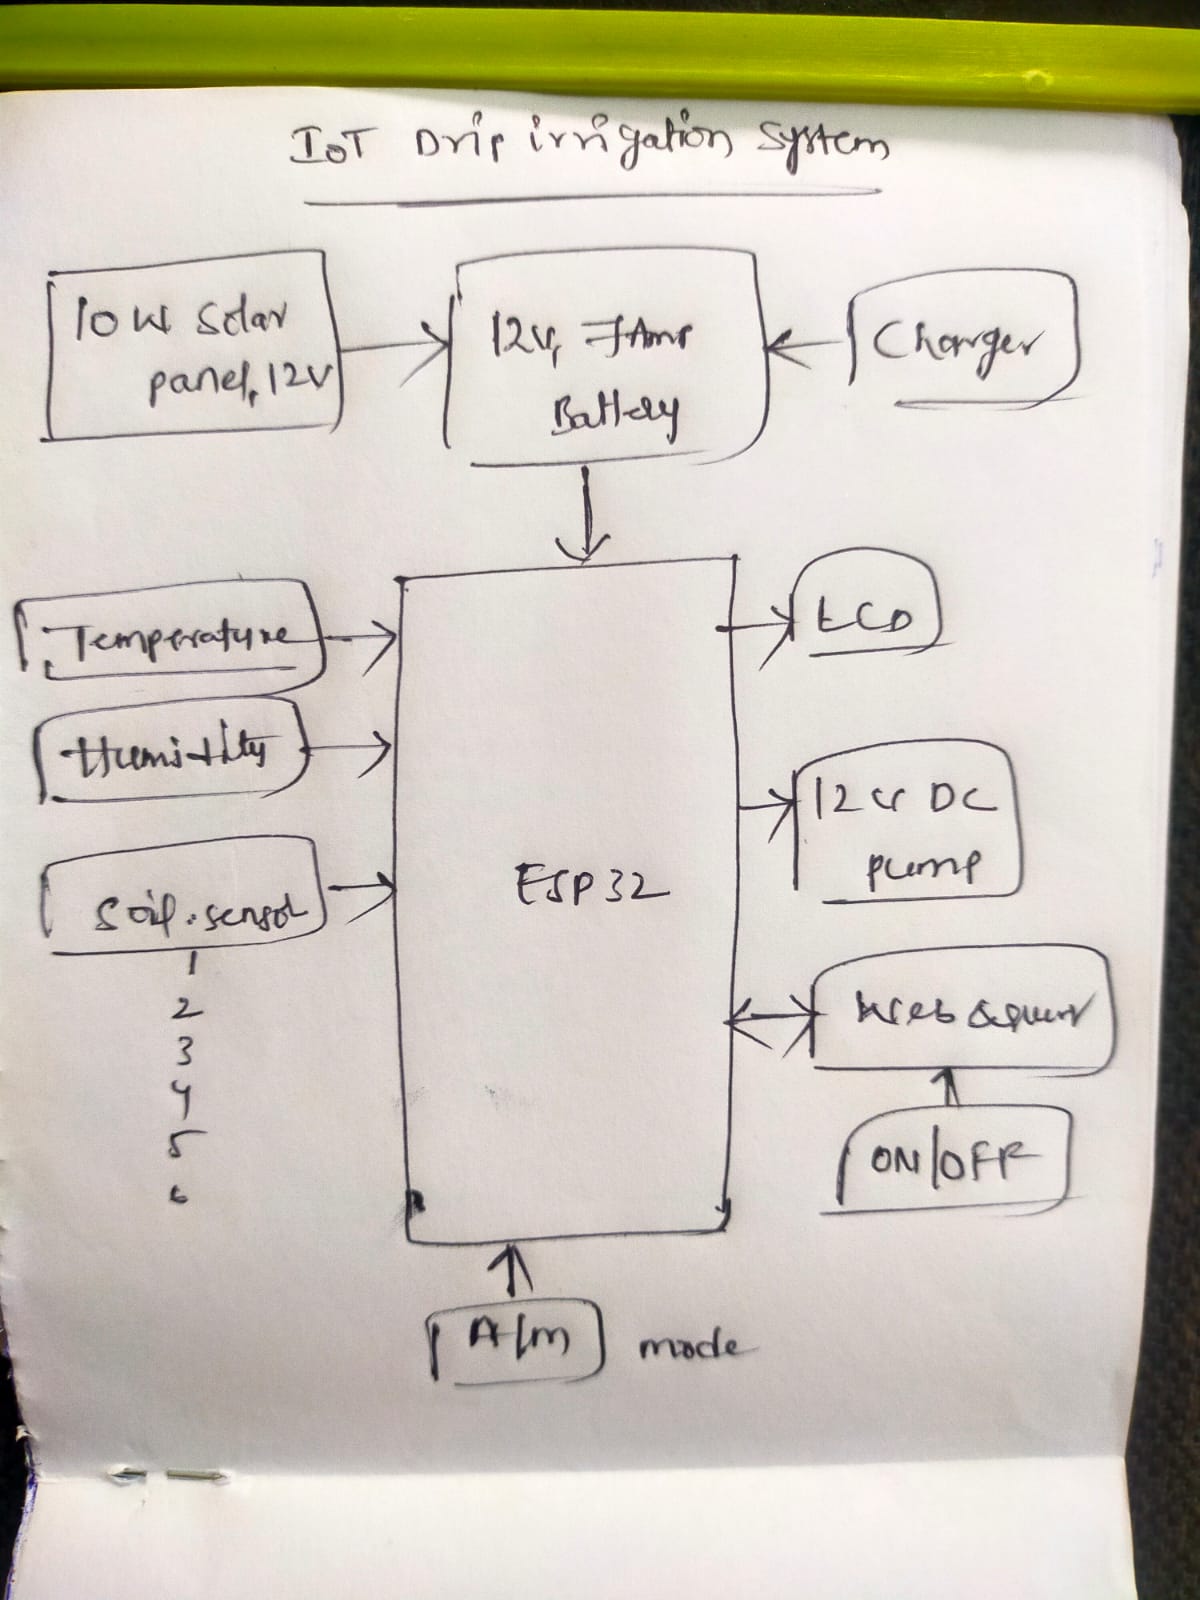 IoT Drip irrigation System
10W Solar
panel, 12V
12V, 7Amp
Battery
Charger
Temperature
Humidity
Soil sensor
1
2
3
4
5
6
ESP32
LCD
12V DC
pump
Web server
ON/OFF
A/m mode